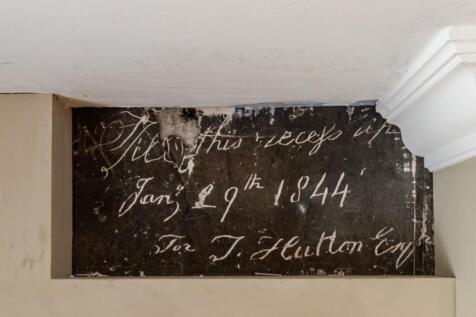 Fill'd this recess up
Jany 29th 1844
For T. Hutton Esqr